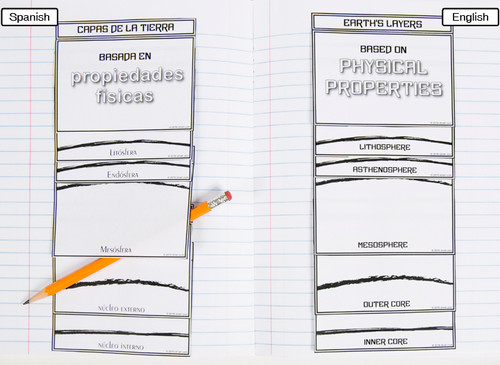 Spanish
CAPAS DE LA TIERRA
BASADA EN
propiedades
físicas
Litósfera
Endósfera
Mesósfera
NÚCLEO EXTERNO
NÚCLEO INTERNO
English
EARTH'S LAYERS
BASED ON
PHYSICAL
PROPERTIES
LITHOSPHERE
ASTHENOSPHERE
MESOSPHERE
OUTER CORE
INNER CORE